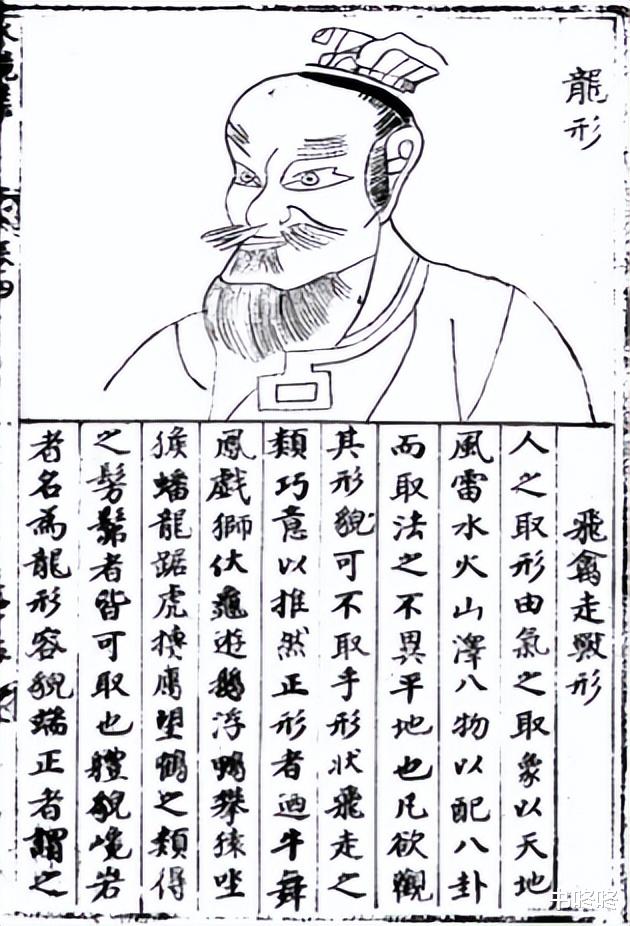 龍形
飛禽走獸形
人之取形由氣之取象以天地
風雷水火山澤八物以配八卦
而取法之不異平地也凡欲觀
其形貌可不取乎形狀飛走之
類巧意以推然正形者迺牛舞
鳳戲獅伏龜遊鵝浮鴨攀猿坐
猴蟠龍踞虎摶鷹望鶴之類得
之髣髴者皆可取也體貌巉岩
者名為龍形容貌端正者謂之
书咯咯